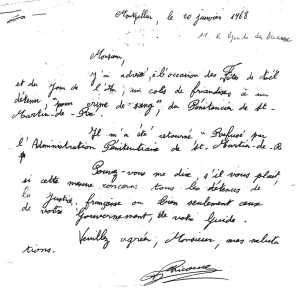 Montpellier, le 20 janvier 1968
M. le Garde des Sceaux
Monsieur,
J'ai adressé, à l'occasion des Fêtes de Noël
et du Jour de l'An, un colis de friandises à un
détenu, "pour crime de sang", du Pénitencier de St-
Martin-de-Ré.
Il m'a été retourné "Refusé par
l'Administration Pénitentiaire de St-Martin-de-R
Pouvez-vous me dire, s'il vous plaît,
si cette mesure concerne tous les détenus de
la Justice française ou bien seulement ceux
de votre Gouvernement, de votre Guide.
Veuillez agréer, Monsieur, mes saluta
tions.